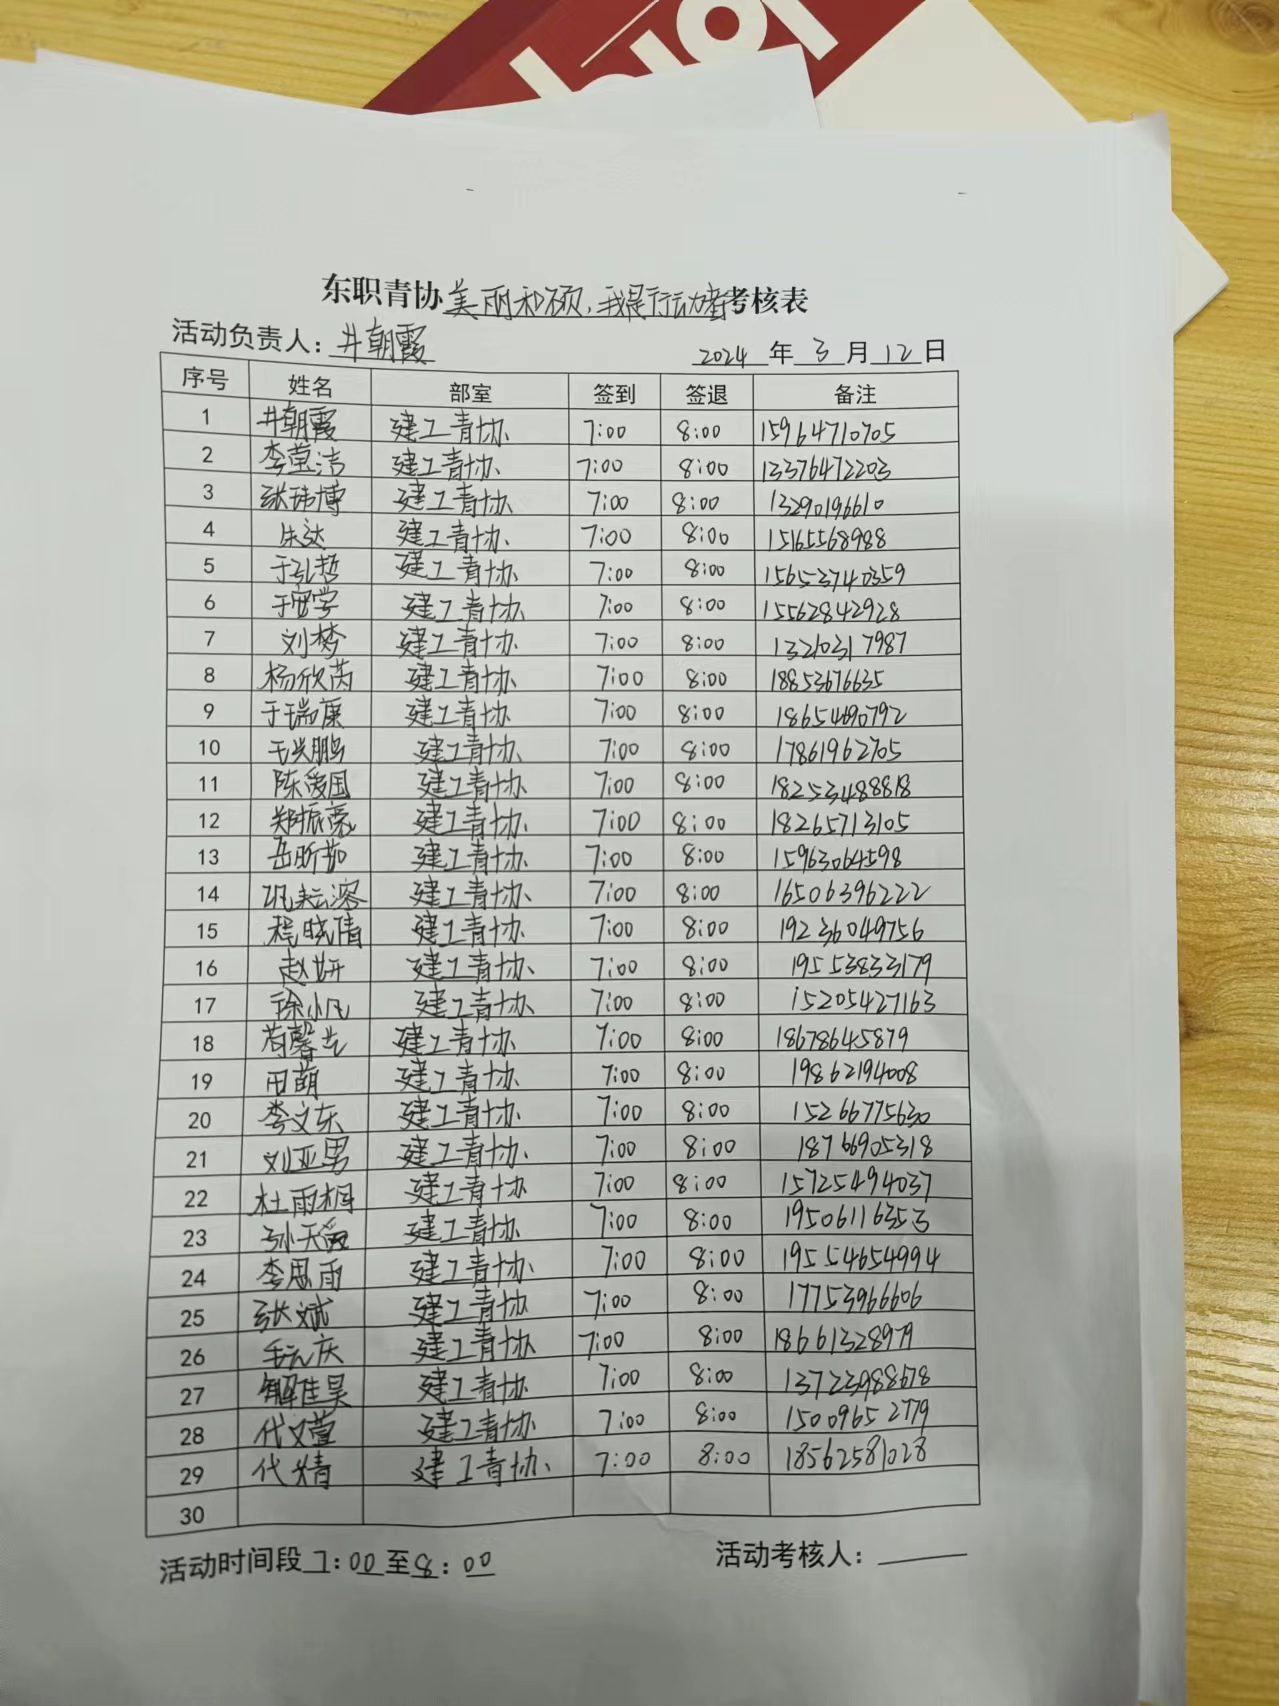 东职青协美丽和硕，我是行动者考核表
活动负责人：井朝霞 2024年3月12日
序号 姓名 部室 签到 签退 备注
1 井朝霞 建工青协 7:00 8:00 15964710705
2 李莹洁 建工青协 7:00 8:00 13376472203
3 张玮博 建工青协 7:00 8:00 13290196610
4 朱达 建工青协 7:00 8:00 15165568988
5 于弘哲 建工青协 7:00 8:00 15653740359
6 于密学 建工青协 7:00 8:00 15562842928
7 刘梦 建工青协 7:00 8:00 13210317987
8 杨欣芮 建工青协 7:00 8:00 18853676635
9 于瑞康 建工青协 7:00 8:00 18654690792
10 王兴鹏 建工青协 7:00 8:00 17861962705
11 陈爱国 建工青协 7:00 8:00 18253488818
12 郑振亮 建工青协 7:00 8:00 18265713105
13 岳昕茹 建工青协 7:00 8:00 15963064598
14 巩耘溶 建工青协 7:00 8:00 16506396222
15 程晓倩 建工青协 7:00 8:00 19236049756
16 赵妍 建工青协 7:00 8:00 19553833179
17 徐小凡 建工青协 7:00 8:00 15205427163
18 建工青协 7:00 8:00 18678645879
19 田萌 建工青协 7:00 8:00 19862194008
20 李文东 建工青协 7:00 8:00 15266775630
21 刘亚男 建工青协 7:00 8:00 18766905318
22 杜雨桐 建工青协 7:00 8:00 15725494037
23 建工青协 7:00 8:00 19506116353
24 李思雨 建工青协 7:00 8:00 19554654994
25 张斌 建工青协 7:00 8:00 17753966606
26 毛元庆 建工青协 7:00 8:00 18661328979
27 解佳昊 建工青协 7:00 8:00 13723988678
28 代文萱 建工青协 7:00 8:00 15009652779
29 代婧 建工青协 7:00 8:00 18562581028
30
活动时间段7:00至8:00 活动考核人：